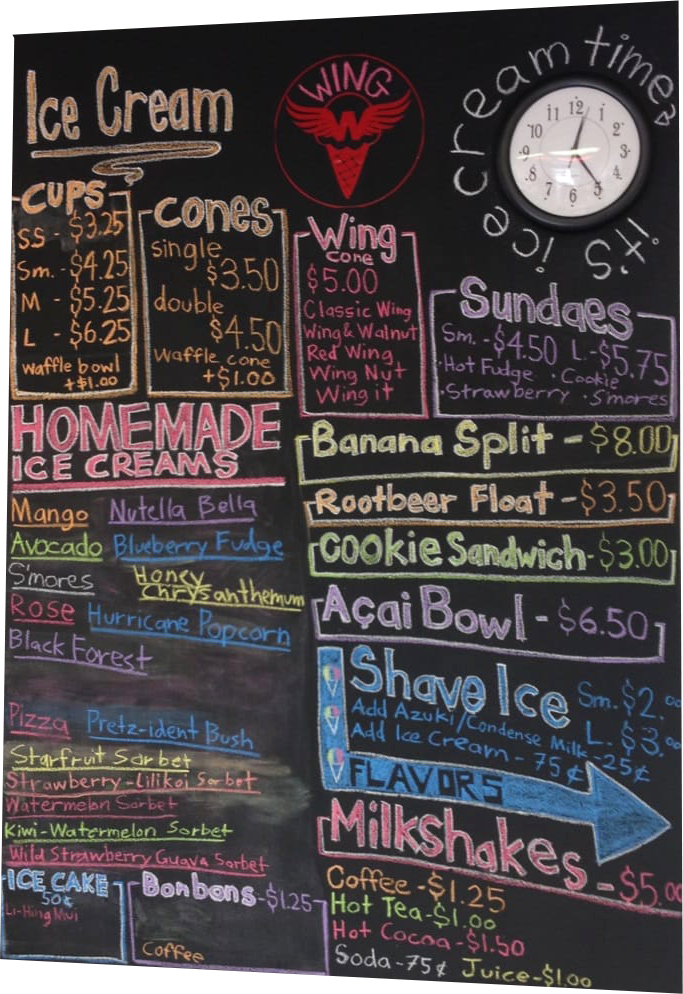 Ice Cream
WING
W
it's ice cream time?
12
1
2
3
4
5
6
7
8
9
10
11
CUPS
SS - $3.25
Sm. - $4.25
M - $5.25
L - $6.25
Waffle bowl
+$1.00
Cones
single
$3.50
double
$4.50
Waffle cone
+$1.00
Wing
Cone
$5.00
Classic Wing
Wing & Walnut
Red Wing
Wing Nut
Wing it
Sundaes
Sm. - $4.50 L - $5.75
·Hot Fudge ·Cookie
·Strawberry ·S'mores
HOMEMADE
ICE CREAMS
Mango Nutella Bella
Avocado Blueberry Fudge
S'mores Honey
Chrysanthemum
Rose Hurricane Popcorn
Black Forest
Pizza Pretz-ident Bush
Starfruit Sorbet
Strawberry-Lilikoi Sorbet
Watermelon Sorbet
Kiwi-Watermelon Sorbet
Wild Strawberry Guava Sorbet
ICE CAKE
50¢
Li-Hing Mui
Bonbons - $1.25
Coffee
Banana Split - $8.00
Rootbeer Float - $3.50
Cookie Sandwich - $3.00
Açai Bowl - $6.50
Shave Ice Sm. $2.00
L. $3.00
Add Azuki/Condense Milk - 25¢
Add Ice Cream - 75¢
FLAVORS
Milkshakes - $5.00
Coffee - $1.25
Hot Tea - $1.00
Hot Cocoa - $1.50
Soda - 75¢ Juice - $1.00